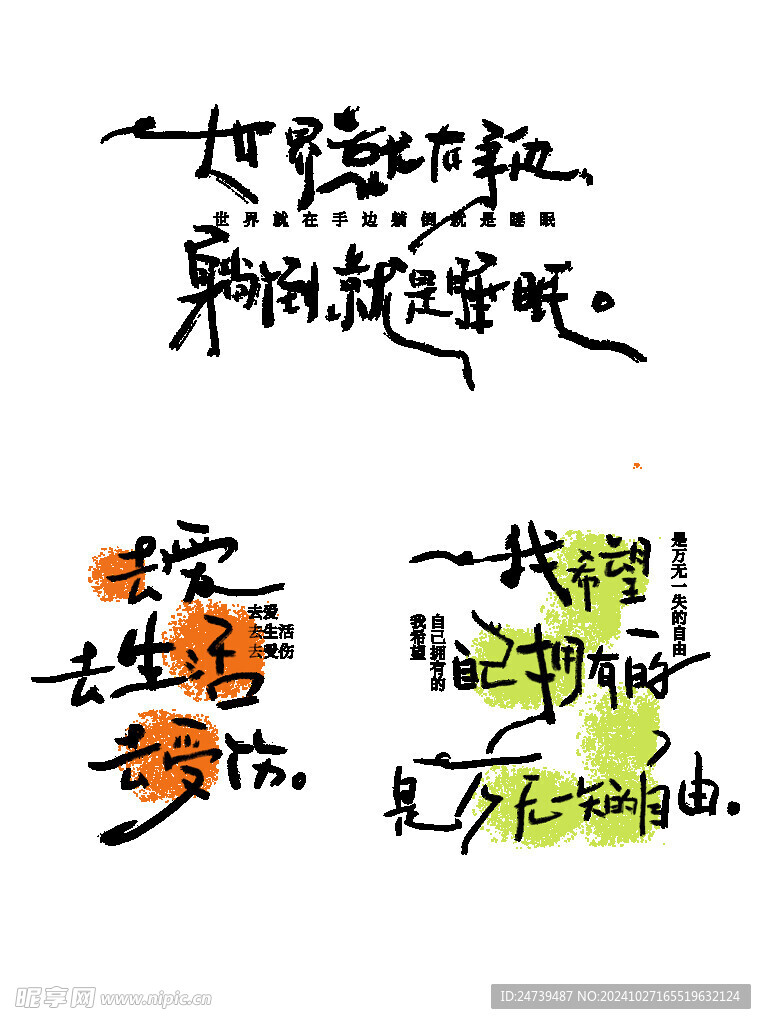 世界就在手边
世界就在手边躺倒就是睡眠
躺倒就是睡眠。
去爱
去爱
去生活
去受伤
去生活
去受伤。
我希望
是万无一失的自由
我希望
自己拥有的
自己拥有的
是万无一失的自由。
昵享网 www.nipic.cn
ID:24739487 NO:20241027165519632124